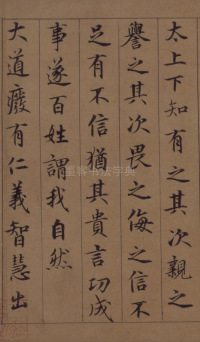 太上下知有之其次親之
譽之其次畏之侮之信不
足有不信猶其貴言功成
事遂百姓謂我自然
大道廢有仁義智慧出